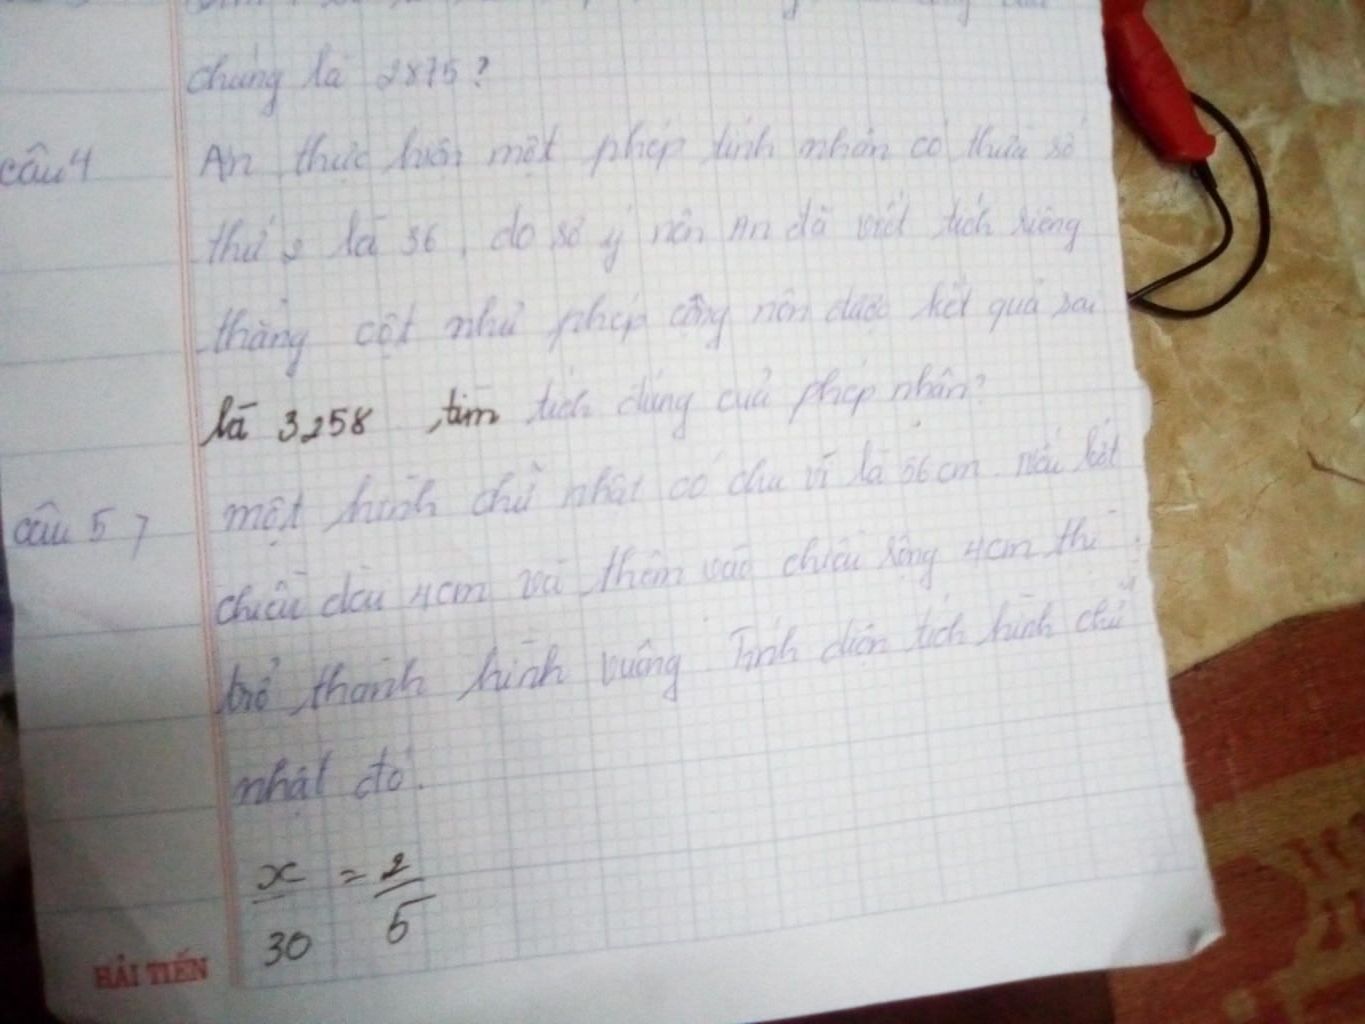 chúng là 2875?
Câu 4 An thực hiện một phép tính nhân có thừa số
thứ 2 là 36, do sơ ý nên An đã viết tích riêng
thẳng cột như phép cộng nên được kết quả sai
là 3258 tìm tích đúng của phép nhân?
Câu 5 7 một hình chữ nhật có chu vi là 56cm. nếu bớt
chiều dài 4cm và thêm vào chiều rộng 4cm thì
trở thành hình vuông. Tính diện tích hình chữ
nhật đó.
x/30 = 2/5
HẢI TIẾN